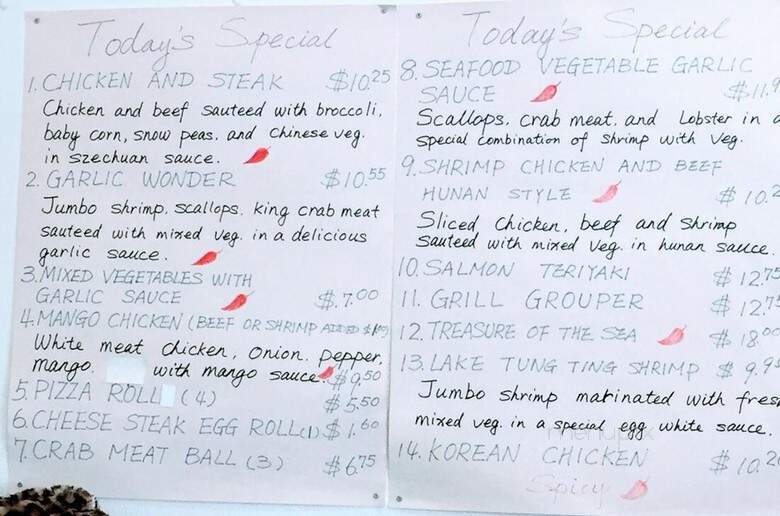 Today's Special
1. CHICKEN AND STEAK $10.25
Chicken and beef sauteed with broccoli,
baby corn, snow peas. and Chinese veg.
in szechuan sauce.
2. GARLIC WONDER $10.55
Jumbo shrimp, scallops, king crab meat
sauteed with mixed veg. in a delicious
garlic sauce.
3. MIXED VEGETABLES WITH
GARLIC SAUCE $7.00
4. MANGO CHICKEN (BEEF OR SHRIMP ADDED
White meat chicken, onion, pepper,
mango. with mango sauce. $9.50
5. PIZZA ROLL (4) $5.50
6. CHEESE STEAK EGG ROLL (1) $1.60
7. CRAB MEAT BALL (3) $6.75
Today's Special
8. SEAFOOD VEGETABLE GARLIC
SAUCE $11.9
Scallops, crab meat, and Lobster in a
special combination of shrimp with veg.
9. SHRIMP CHICKEN AND BEEF
HUNAN STYLE $10.
Sliced Chicken, beef and shrimp
sauteed with mixed veg. in hunan sauce.
10. SALMON TERIYAKI $12.75
11. GRILL GROUPER $12.7
12. TREASURE OF THE SEA $18.00
13. LAKE TUNG TING SHRIMP $9.95
Jumbo shrimp marinated with fresh
mixed veg. in a special egg white sauce.
14. KOREAN CHICKEN $10.2
Spicy